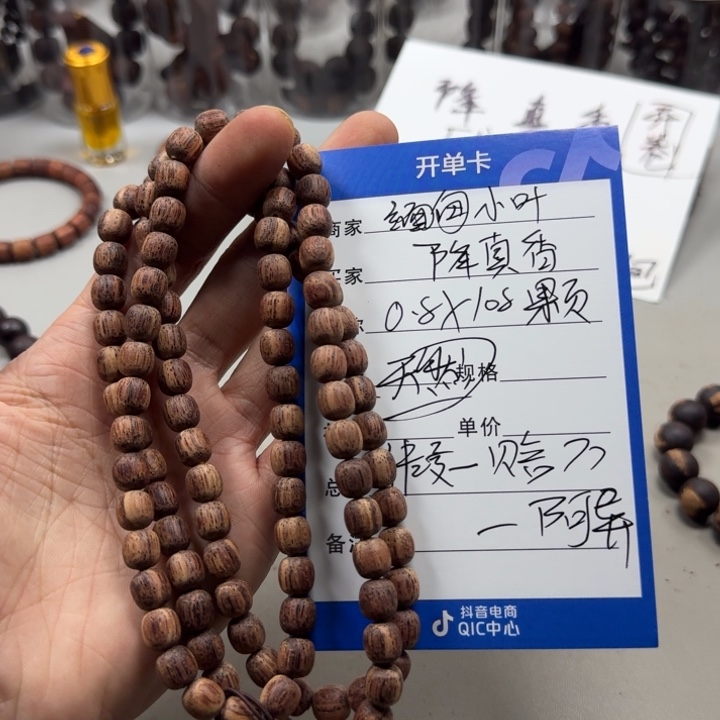 降真香
开制
开单卡
商家 缅甸小叶
买家 降真香
0.8X108颗
天然 规格
单价
总 假一赔万
备注 一阿华
抖音电商
QIC中心